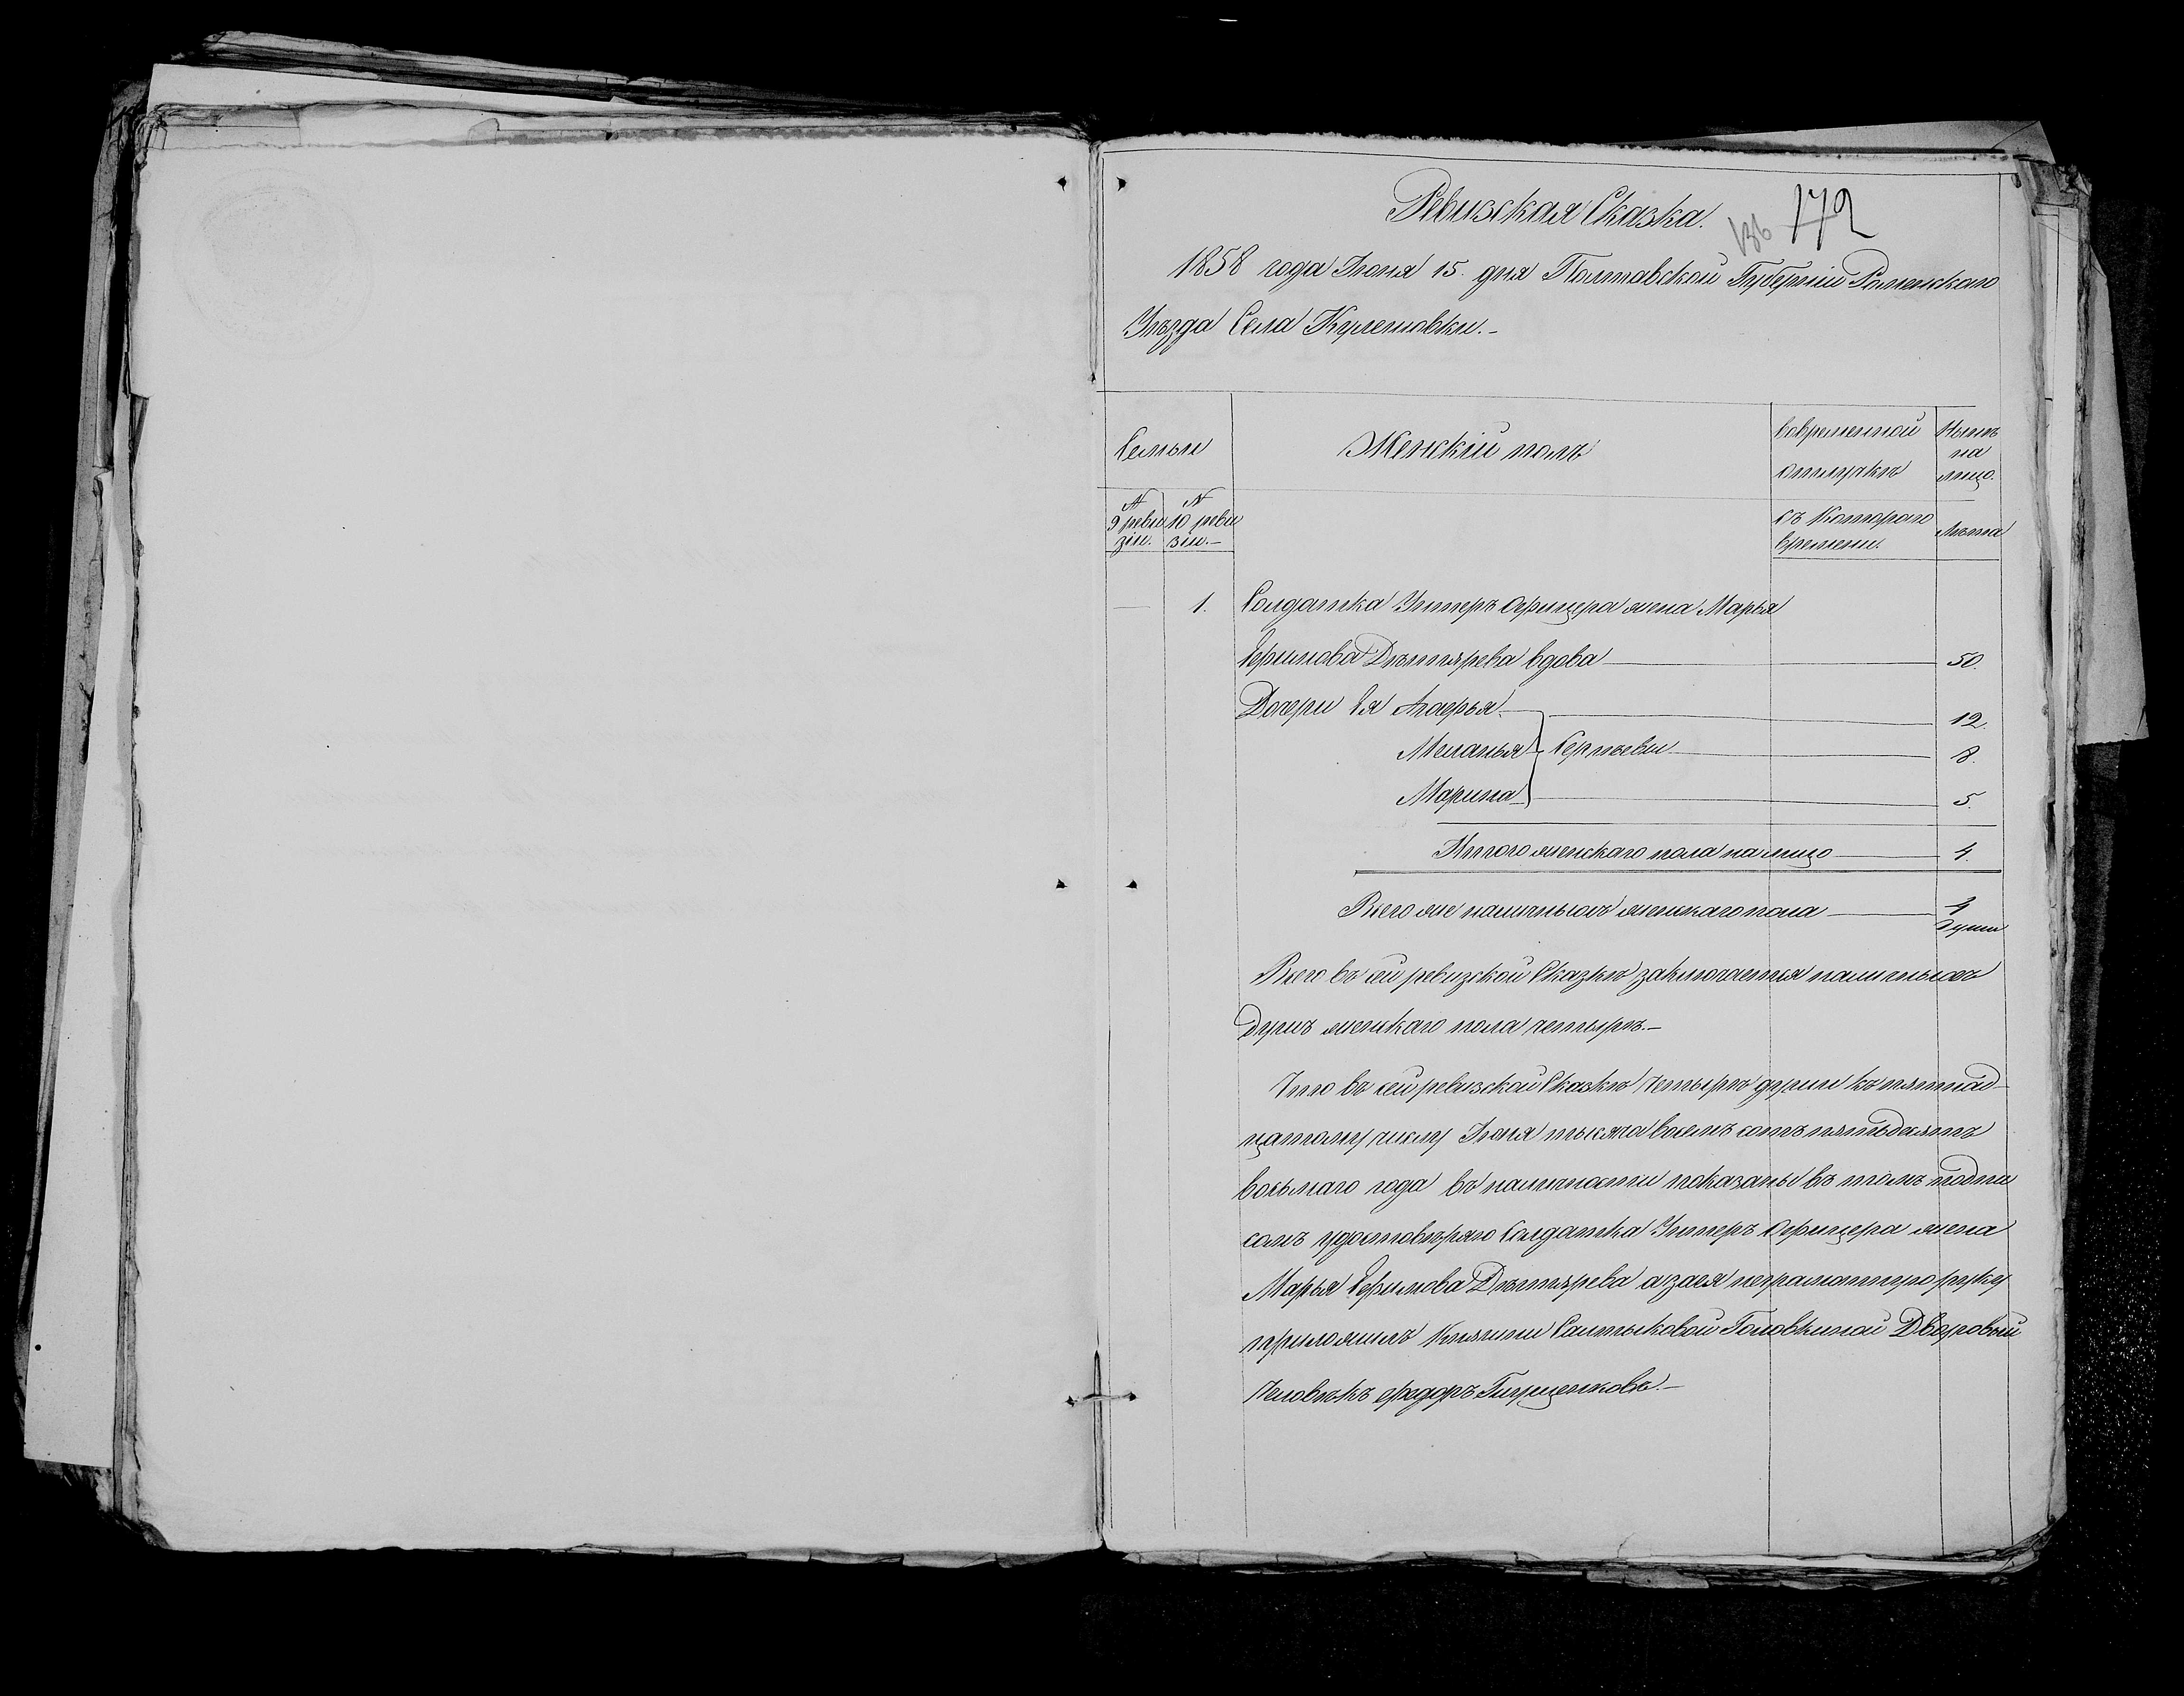 Ревизская Сказка.
136 172
1858 года Іюня 15. дня Полтавской Губерніи Роменскаго
Уѣзда Села Кулешовки.-
Семьи
Женскій полъ
Вовременной отлучкѣ
Нынѣ на лицо.
№ 9 ревизіи.
№ 10 ревизіи.-
съ Котораго времени.
Лѣта
1. Солдатка Унтеръ Офицера жена Марья
Ефимова Дѣгтярева вдова 50.
Дочери Ея Агафья 12.
Меланья Сергѣевы 8.
Марина 5.
Итого женскаго пола на лицо 4.
Всего же наличныхъ женскаго пола 4 души
Всего въ сей ревизской Сказкѣ заключается наличныхъ
душъ женскаго пола четырѣ.-
Что въ сей ревизской Сказкѣ четырѣ души къ пятнад-
цатому числу Іюня тысяча восемъ сотъ пятьдесятъ
восьмаго года въ наличности показаны въ томъ подпи
сомъ удостовѣряю Солдатка Унтеръ Офицера жена
Марья Ефимова Дѣгтярева а за ея неграмотную руку
приложилъ Княгини Салтыковой Головкиной Дворовый
Человѣкъ Федоръ